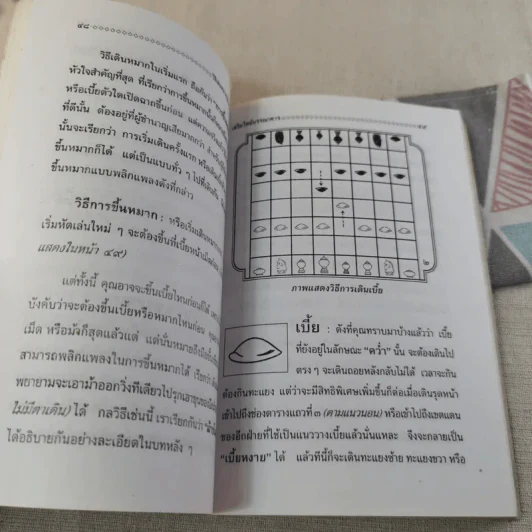 ๔๘
วิธีเดินหมากในเริ่มแรก
หัวใจสำคัญที่สุด ที่เรียกว่าการขึ้นหมาก
หรือเบี้ยตัวใดเปิดฉากขึ้นก่อน
ที่ดีนั้น ต้องอยู่ที่ผู้ชำนาญเสียมากกว่า
นั้นจะเรียกว่า การเริ่มเดินครั้งแรก
ขึ้นหมากก็ได้ แต่เป็นแบบทั่ว ๆ ไป
ขึ้นหมากแบบพลิกแพลงดังที่กล่าว
วิธีการขึ้นหมาก : หรือเริ่มเดิน
เริ่มหัดเล่นใหม่ ๆ จะต้องขึ้นที่เบี้ยหน้าเม็ด
แสดงในหน้า ๔๙)
แต่ทั้งนี้ คุณอาจจะขึ้นเบี้ยไหนก่อนก็ได้
บังคับว่าจะต้องขึ้นเบี้ยหรือหมากไหนก่อน
เม็ด หรือม้าก็สุดแล้วแต่ แต่นั่นหมายถึง
สามารถพลิกแพลงในการขึ้นหมากได้
พยายามจะเอาม้าออกวิ่งทีเดียวไปรุก
ไม่มีตาเดิน) ได้ กลวิธีเช่นนี้ เราเรียกกันว่า
ได้อธิบายกันอย่างละเอียดในบทหลัง ๆ
๔๙
๒
ภาพแสดงวิธีการเดินเบี้ย
เบี้ย : ดังที่คุณทราบมาบ้างแล้วว่า เบี้ย
ที่ยังอยู่ในลักษณะ "คว่ำ" นั้น จะต้องเดินไป
ตรง ๆ จะเดินถอยหลังกลับไม่ได้ เวลาจะกิน
ต้องกินทะแยง แต่ว่าจะมีสิทธิพิเศษเพิ่มขึ้นก็ต่อเมื่อเดินรุดหน้า
เข้าไปถึงช่องตารางแถวที่ ๓ (ตามแนวนอน) หรือเข้าไปถึงเขตแดน
ของอีกฝ่ายที่ใช้เป็นแนววางเบี้ยแล้วนั่นแหละ จึงจะกลายเป็น
"เบี้ยหงาย" ได้ แล้วทีนี้ก็จะเดินทะแยงซ้าย ทะแยงขวา หรือ